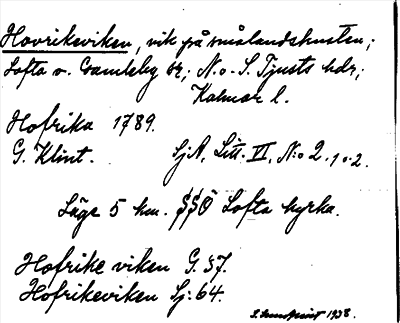 Hovrikeviken, vik på smålandskusten;
Lofta o. Gamleby sr; N. o. S. Tjusts hdr;
Kalmar l.
Hofrika 1789.
G. Klint. SjA, Litt. VI, N:o 2. 1 o. 2.
Läge 5 km. SSÖ Lofta kyrka.
Hofrike viken G. 57.
Hofrikeviken Sj: 64.
1938.